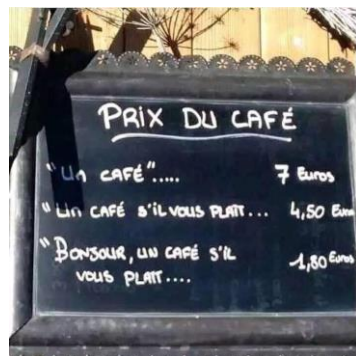 PRIX DU CAFÉ
"Un CAFÉ"..... 7 Euros
"Un CAFÉ S'IL VOUS PLAIT... 4,50 Euros
"BONJOUR, UN CAFÉ S'IL 1,80 Euros
VOUS PLAIT....